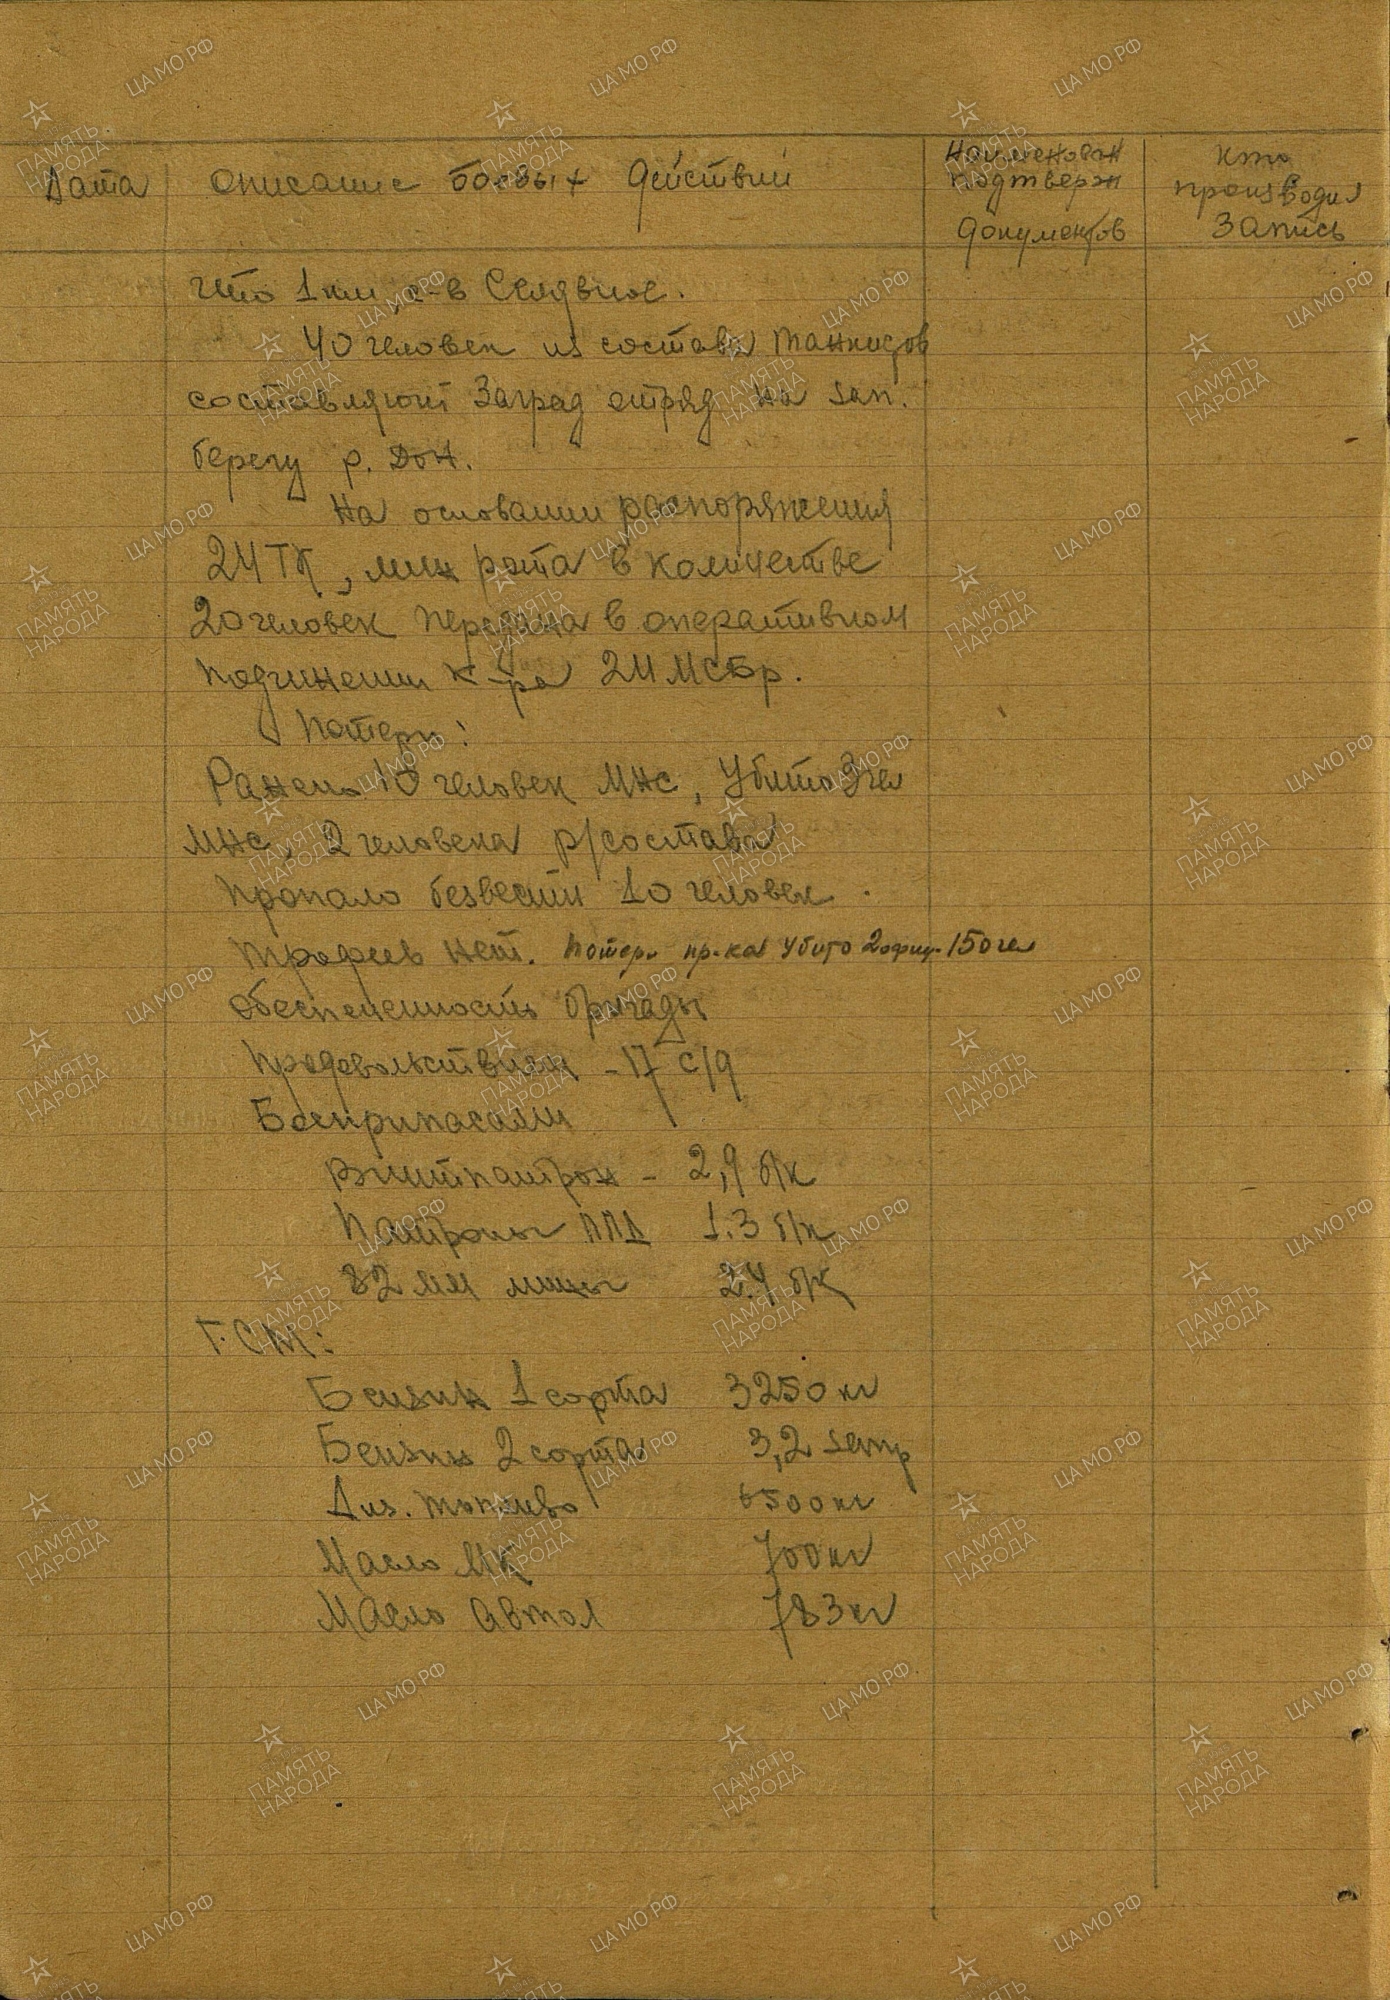 Дата
описание боевых действий
Наименован
подтвержд
документов
кто
производил
запись
что 1 км с-в Селявное.
40 человек из состава танкистов
составляют Заград отряд на зап.
берегу р. Дон.
На основании распоряжения
24 ТК, мин рота в количестве
20 человек передана в оперативном
подчинении к-ра 24 МСБр.
Потери:
Ранено 10 человек МНС, Убито 3 чел
МНС, 2 человека р/состава
Пропало безвести 10 человек.
Трофеев нет. Потери пр-ка убито 2 офиц. 150 чел
Обеспеченность бригады
Продовольствием - 17 с/д
Боеприпасами
Винтпатрон - 2,9 б/к
Патроны ППД 1.3 б/к
82 мм мины 2.4 б/к
ГСМ:
Бензин 1 сорта 3250 кг
Бензин 2 сорта 3,2 запр
Диз. топливо 6500 кг
Масло МК 700 кг
Масло Автол 783 кг